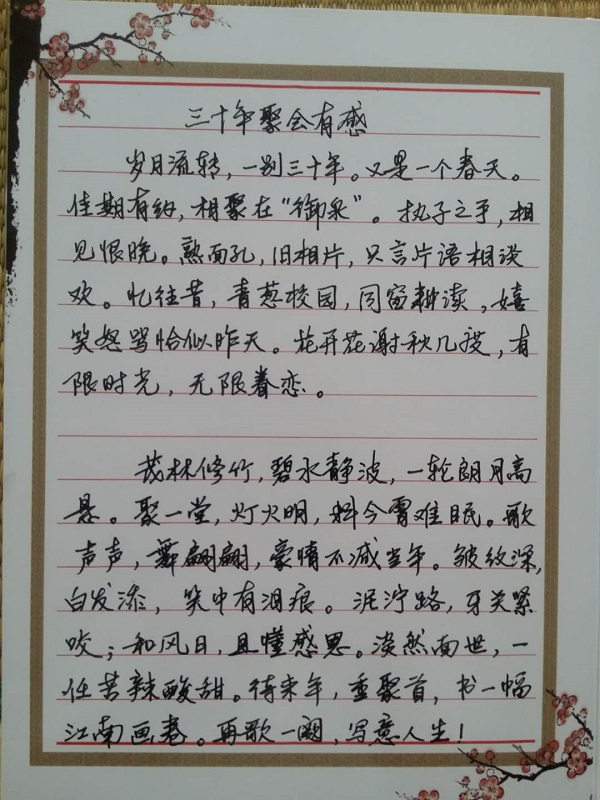 三十年聚会有感
岁月流转，一别三十年。又是一个春天。
佳期有约，相聚在“御泉”。执子之手，相
见恨晚。熟面孔，旧相片，只言片语相谈
欢。忆往昔，青葱校园，同窗耕读，嬉
笑怒骂恰似昨天。花开花谢秋几度，有
限时光，无限眷恋。
茂林修竹，碧水静波，一轮朗月高
悬。聚一堂，灯火明，料今宵难眠。歌
声声，舞翩翩，豪情不减当年。皱纹深，
白发添，笑中有泪痕。泥泞路，牙关紧
咬；和风日，且懂感恩。淡然面世，一
任苦辣酸甜。待来年，重聚首，书一幅
江南画卷。再歌一阕，写意人生！